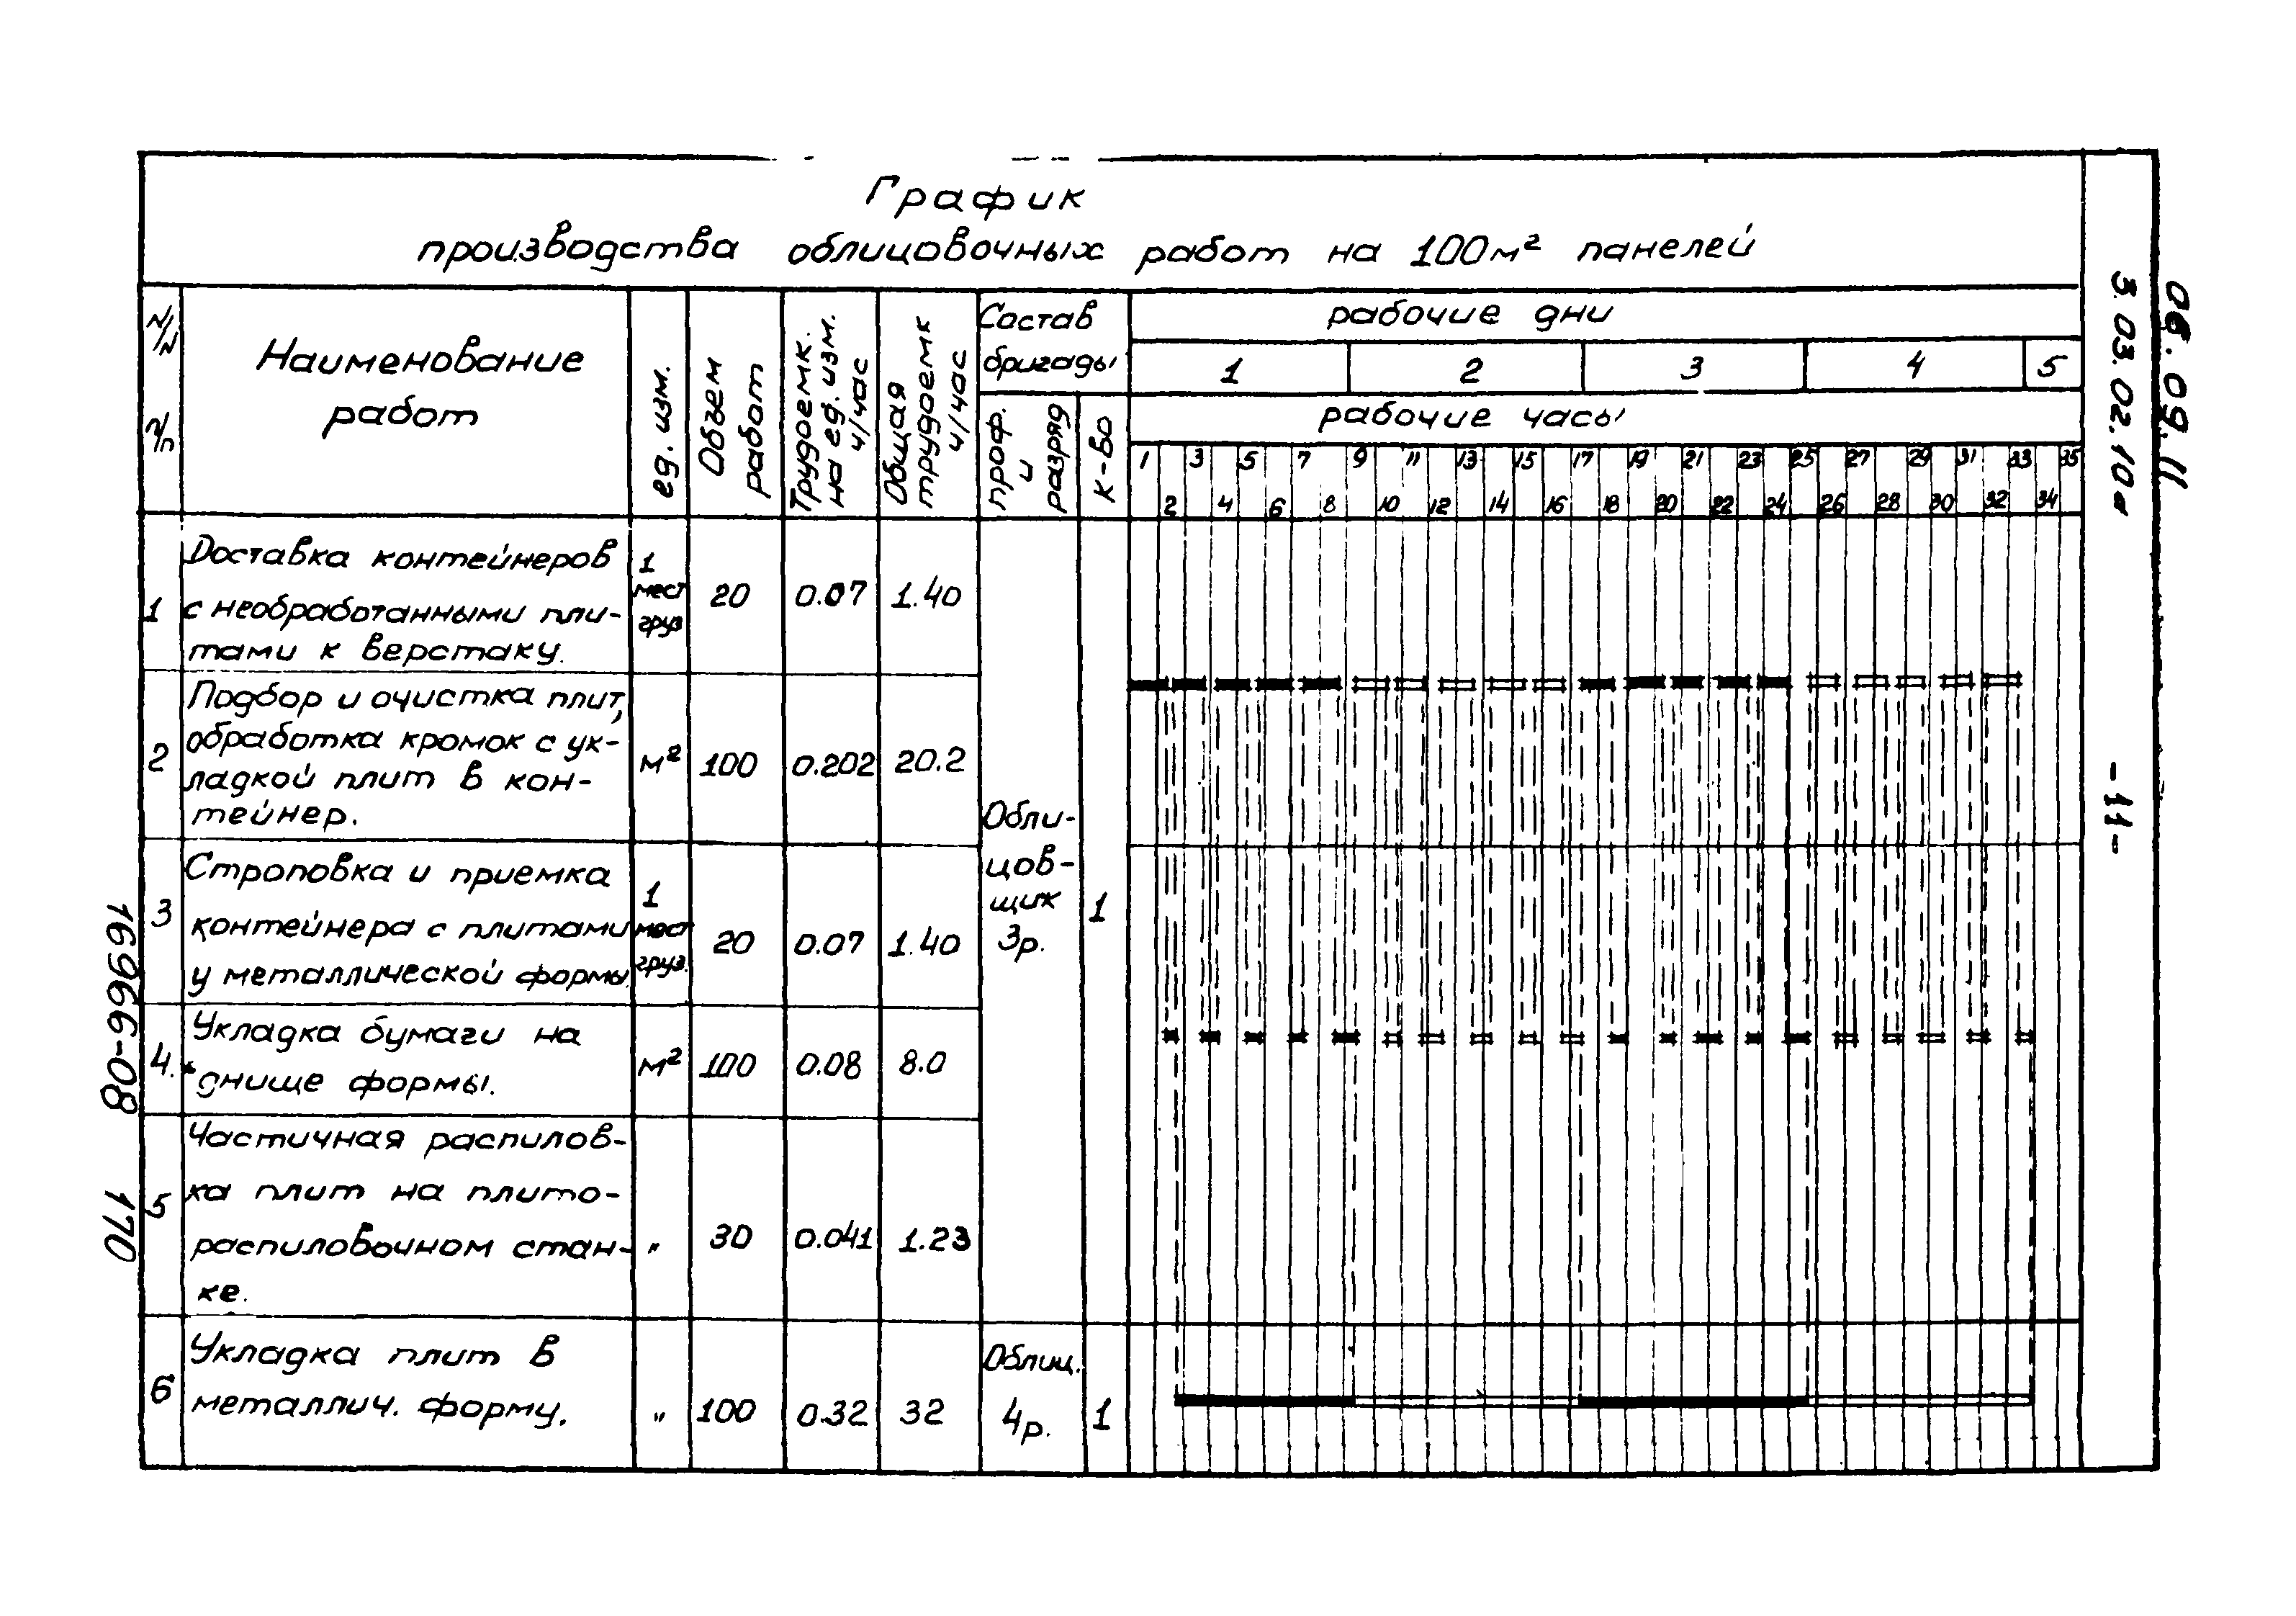 График
производства облицовочных работ на 100м² панелей
N/N п/п
Наименование
работ
ед. изм.
Объем
работ
Трудоемк.
на ед. изм.
ч/час
Общая
трудоемк
ч/час
Состав
бригады
проф.
и
разряд
к-во
рабочие дни
1 2 3 4 5
рабочие часы
1 3 5 7 9 11 13 15 17 19 21 23 25 27 29 31 33 35
2 4 6 8 10 12 14 16 18 20 22 24 26 28 30 32 34
1
Доставка контейнеров
с необработанными пли-
тами к верстаку.
1
мест
груз
20
0.07
1.40
2
Подбор и очистка плит,
обработка кромок с ук-
ладкой плит в кон-
тейнер.
м²
100
0.202
20.2
3
Строповка и приемка
контейнера с плитами
у металлической формы.
1
мест
груз.
20
0.07
1.40
4.
Укладка бумаги на
днище формы.
м²
100
0.08
8.0
5
Частичная распилов-
ка плит на плито-
распиловочном стан-
ке.
"
30
0.041
1.23
Обли-
цов-
щик
3р.
1
6
Укладка плит в
металлич. форму.
"
100
0.32
32
Облиц.
4р.
1
06.09.11
3.03.02.10а
-11-
16996-08
170